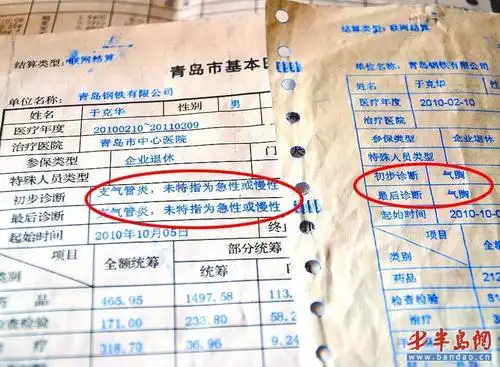 结算类型: 联网结算
青岛市基本
单位名称: 青岛钢铁有限公司
姓名 于克华 性别 男
医疗年度 20100210~20110209
治疗医院 青岛市中心医院
参保类型 企业退休 门
特殊人员类型
初步诊断 支气管炎，未特指为急性或慢性
最后诊断 支气管炎，未特指为急性或慢性
起始时间 2010年10月05日 终
项目 全额统筹 部分统筹
类别 统筹
药品 465.95 1497.58 113.
检查检验 171.00 233.80 58.2
疗 318.70 36.96 9.24
结算类型: 联网结算
单位名称: 青岛钢铁有限公司
姓名 于克华
医疗年度 2010-02-10
治疗医院
参保类型 企业退休
特殊人员类型
初步诊断 气胸
最后诊断 气胸
起始时间 2010-10-
项目
类别 统
药品 212
检查检验 81
治疗 3
半岛网
www.bandao.cn